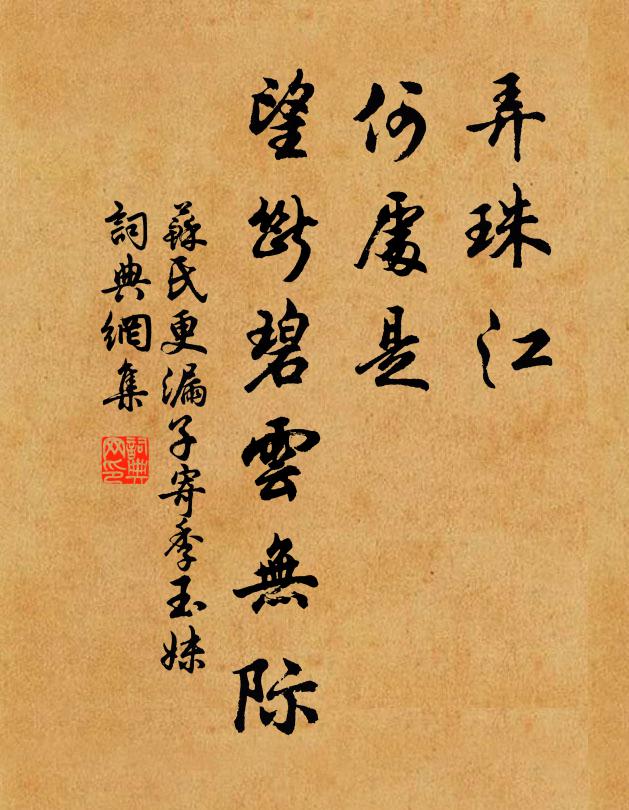 弄珠江
何處是
望斷碧雲無際
蘇氏更漏子寄季玉妹
詞典網集
詞典网印